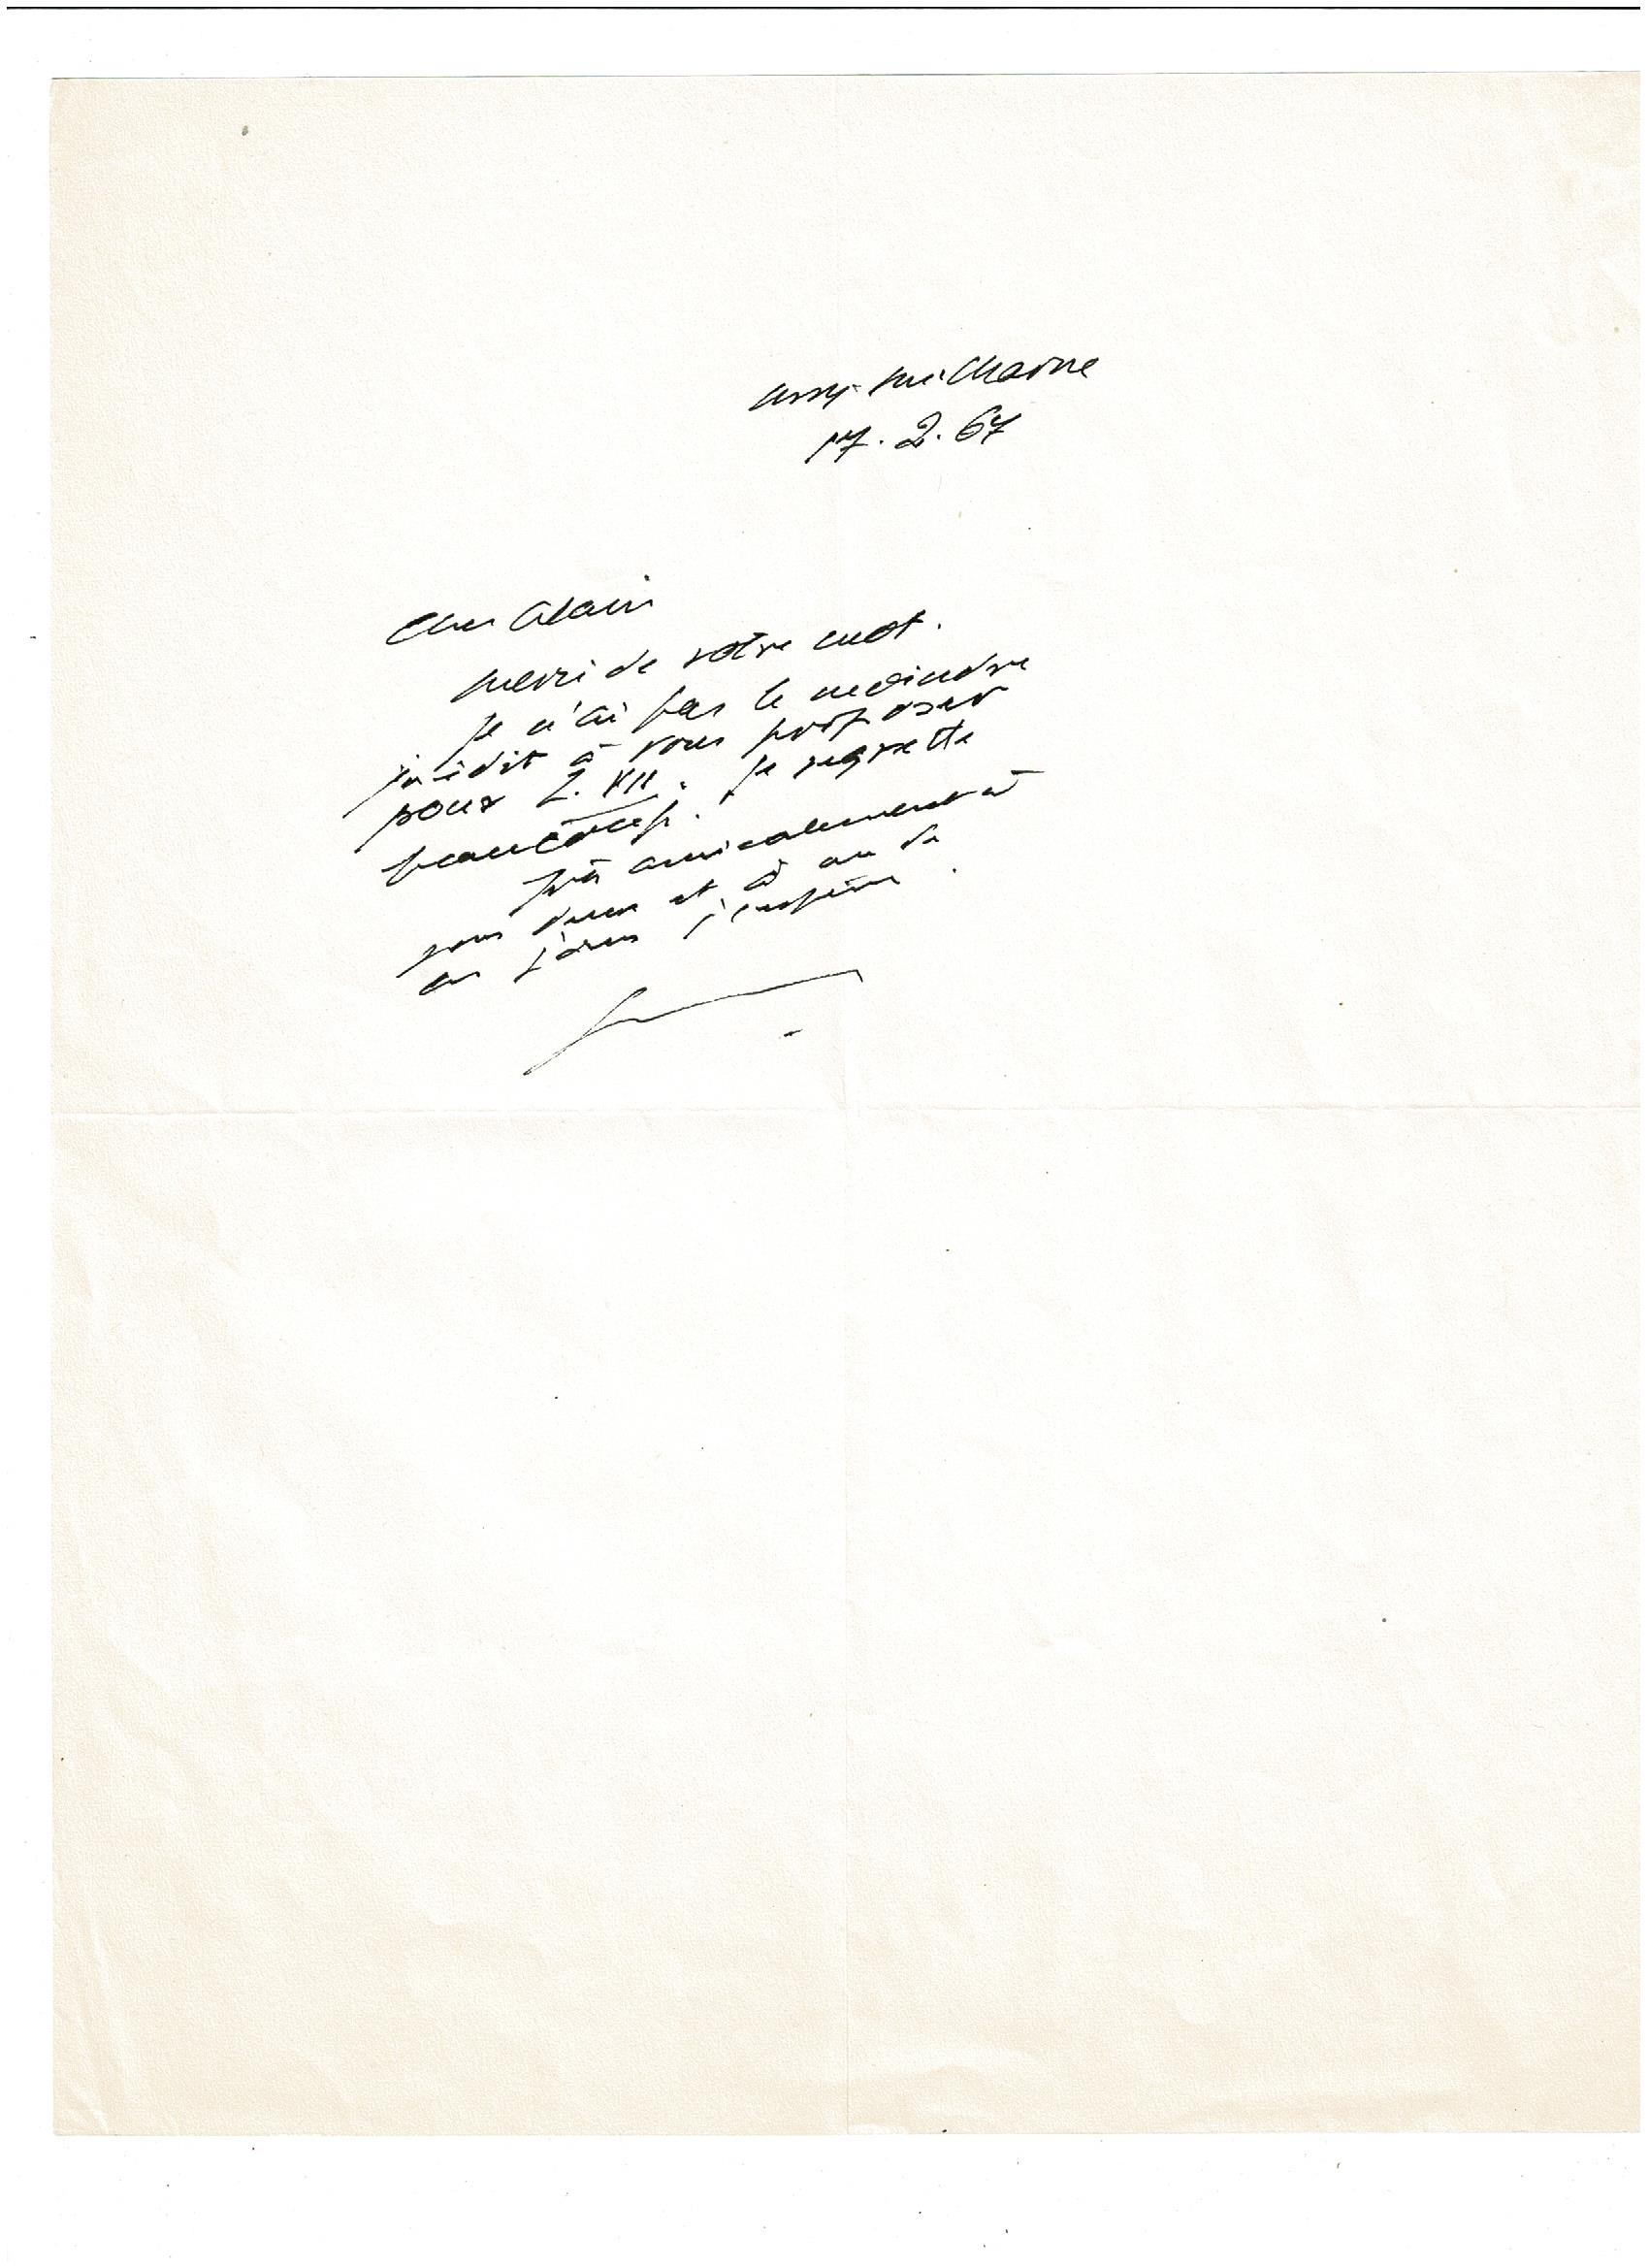 Ussy-sur-Marne
17. 2. 67
Cher Alain
merci de votre mot.
Je n'ai pas le moindre
inédit à vous proposer
pour L. VII. Je regrette
beaucoup.
Très amicalement à
vous deux et à un de
ces jours j'espère.